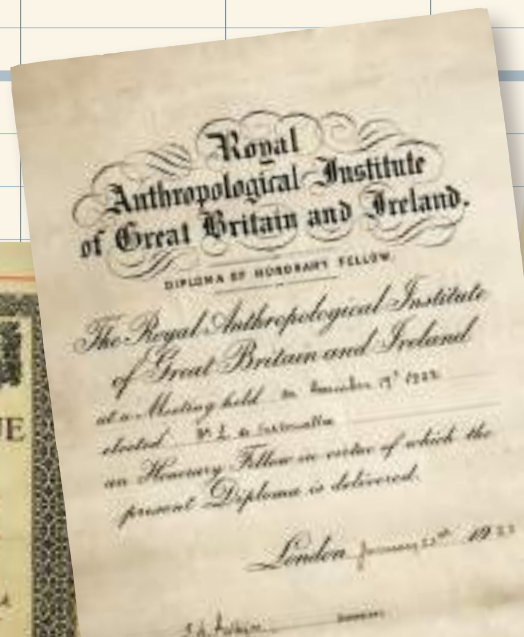 Royal
Anthropological Institute
of Great Britain and Ireland.
DIPLOMA OF HONORARY FELLOW.
The Royal Anthropological Institute
of Great Britain and Ireland
at a Meeting held on
elected
an Honorary Fellow in virtue of which the
present Diploma is delivered.
London January 19
UE